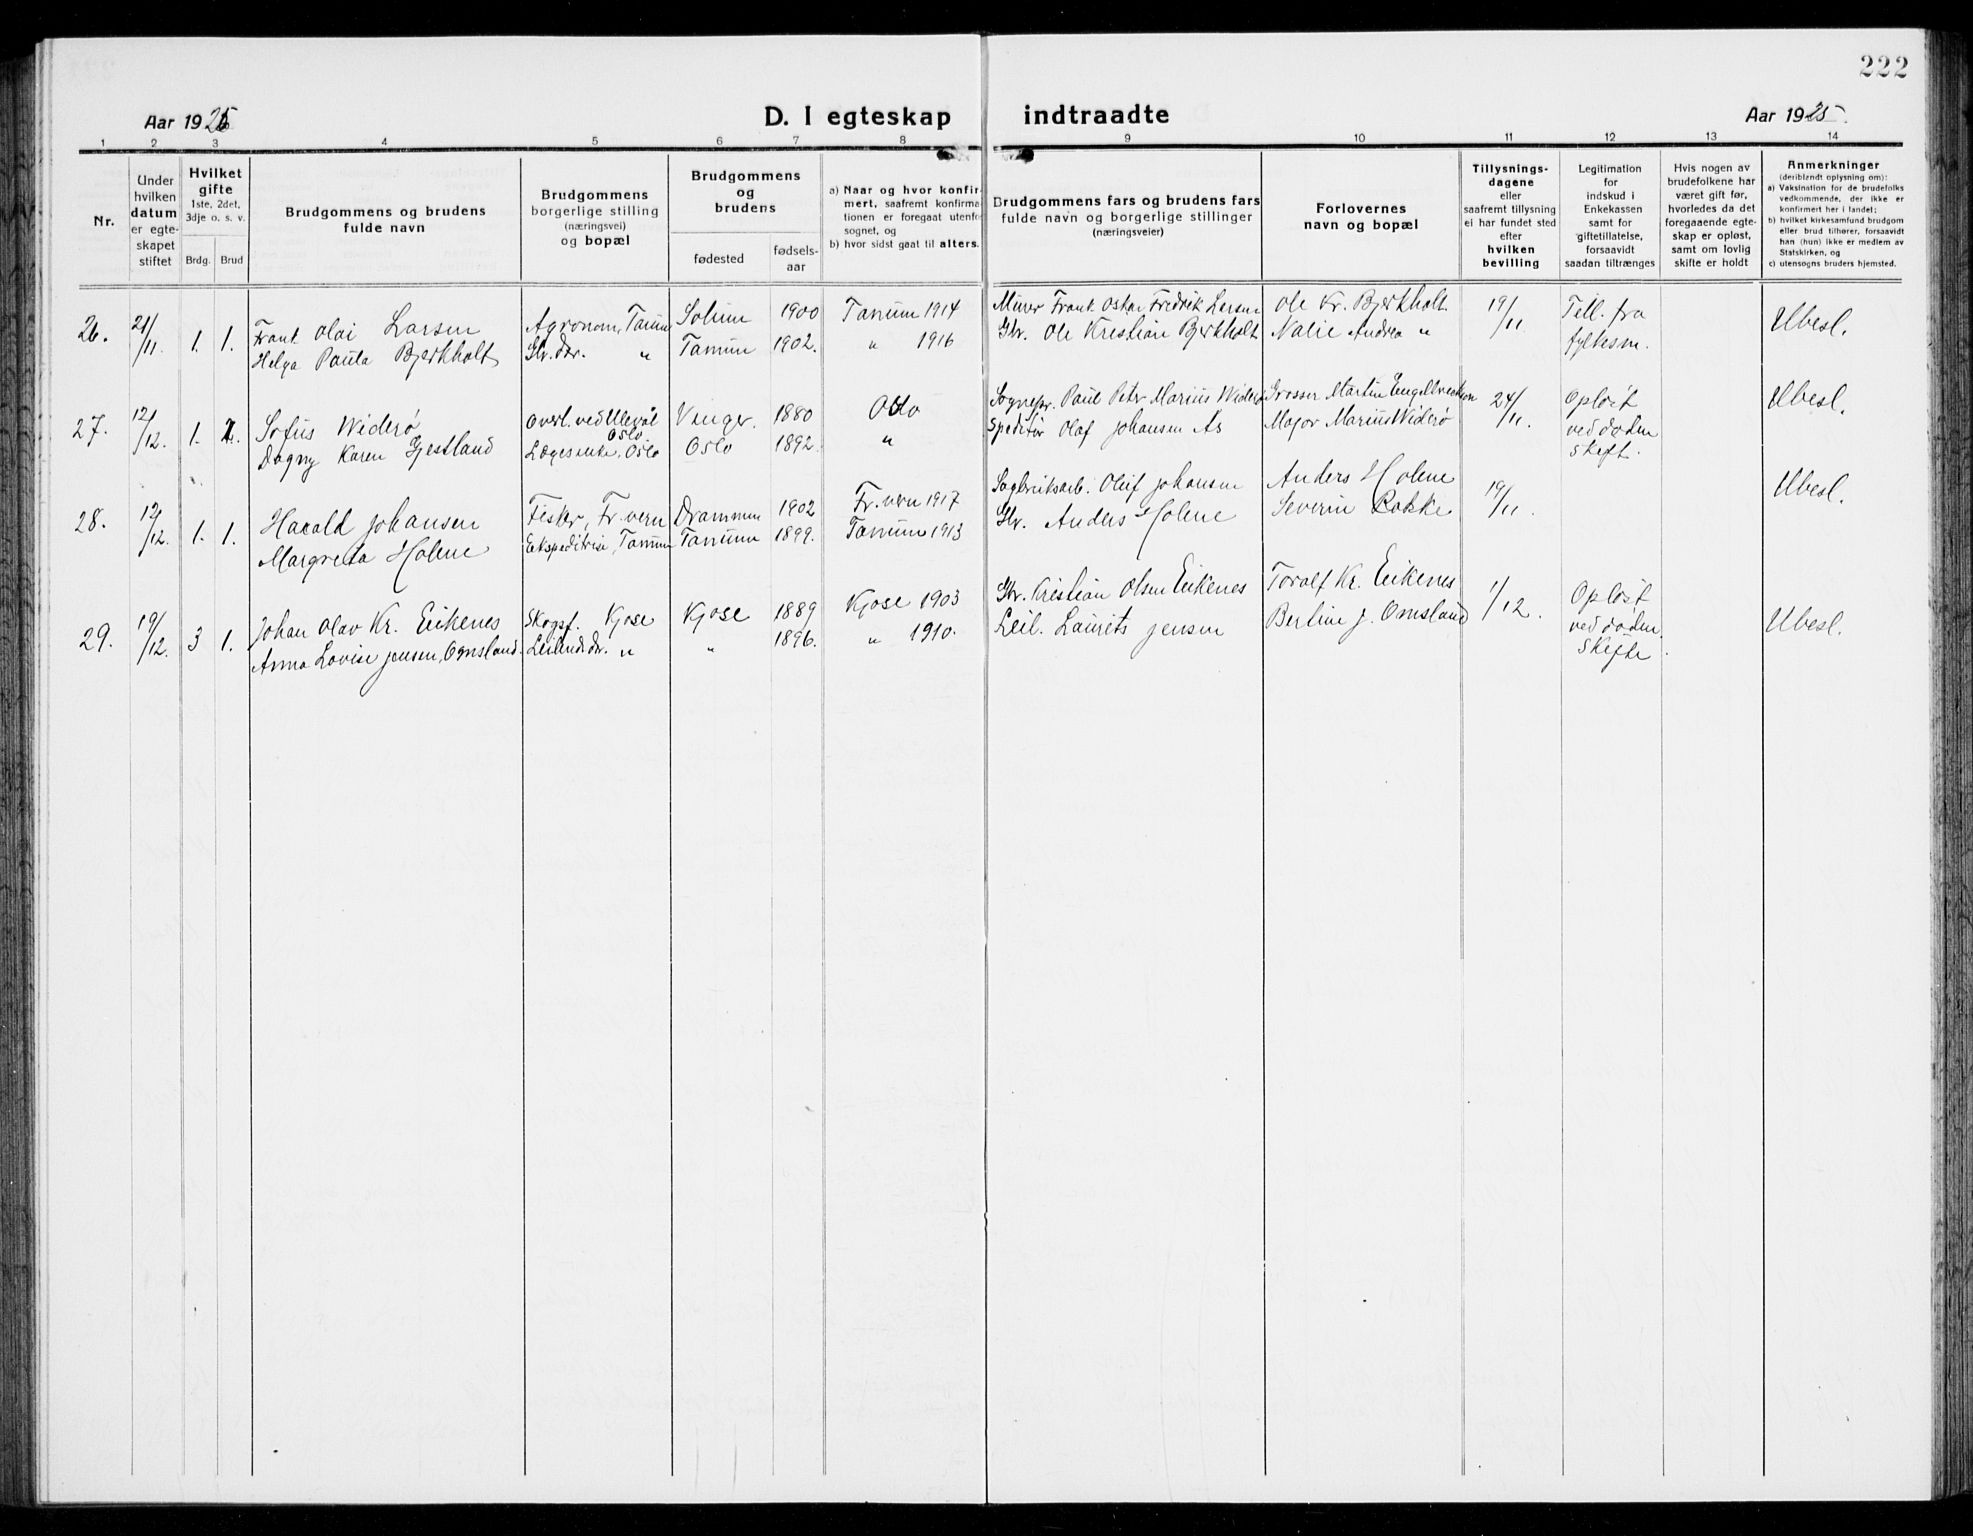 222
Aar 1925
D. I egteskap indtraadte
Aar 1925.
1 2 3 4 5 6 7 8 9 10 11 12 13 14
Nr.
Under
hvilken
datum
er egte-
skapet
stiftet
Hvilket
gifte
1ste, 2det,
3dje o. s. v.
Brdg. Brud
Brudgommens og brudens
fulde navn
Brudgommens
borgerlige stilling
(næringsvei)
og bopæl
Brudgommens
og
brudens
fødested
fødsels-
aar
a) Naar og hvor konfir-
mert, saafremt konfirma-
tionen er foregaat utenfo
sognet, og
b) hvor sidst gaat til alters.
Brudgommens fars og brudens fars
fulde navn og borgerlige stillinger
(næringsveier)
Forlovernes
navn og bopæl
Tillysnings-
dagene
eller
saafremt tillysning
ei har fundet sted
efter
hvilken
bevilling
Legitimation
for
indskud i
Enkekassen
samt for
giftetillatelse,
forsaavidt
saadan tiltrænges
Hvis nogen av
brudefolkene har
været gift før,
hvorledes da det
foregaaende egte-
skap er opløst,
samt om lovlig
skifte er holdt
Anmerkninger
(deriblandt oplysning om):
a) Vaksination for de brudefolks
vedkommende, der ikke er
konfirmert her i landet;
b) hvilket kirkesamfund brudgom
eller brud tilhører, forsaavidt
han (hun) ikke er medlem av
Statskirken, og
c) utensogns bruders hjemsted.
26. 21/11. 1. 1. Frank Olai Larsen Agronom, Tanum Solum 1900 Tanum 1914 Murer Frank Oskar Fredrik Larsen Ole Kr. Bjerkholt 19/11 Till. fra Ubesl.
Helga Paula Bjerkholt Gbr. dtr. " Tanum 1902. " 1916 Gbr. Ole Kristian Bjerkholt Nalie Andrea " fylkesm.
27. 12/12. 1. Sofus Widerø Overl. ved Ulevål Oslo Vinger. 1880 Oslo Sognepr. Paul Peter Marius Widerø Grosser Martin 24/11. Opløst Ubesl.
Dagny Karen Gjestland Oslo Oslo 1892. " Speditør Olaf Johansen As Major Marius Widerø ved døden
skift.
28. 12/12. 1. 1. Harald Johansen Fisker, Fr.vern Drammen 1902 Fr.vern 1917 Sagbruksarb. Oluf Johansen Anders Holene 19/11. Ubesl.
Margreta Holene Ekspeditrise, Tanum Tanum 1899. Tanum 1913 Gbr. Anders Holene Severin Bakke
29. 19/12. 3 1. Johan Olav Kr. Eikenes Skogsf. Kjose Kjose 1889 Kjose 1903 Gbr. Kristian Olsen Eikenes Toralf Kr. Eikenes 1/12. Opløst Ubesl.
Anna Lovise Jensen, Omsland. Leilenddr. " " 1896. " 1910. Leil. Laurits Jensen Bertine J. Omsland ved døden.
Skifte